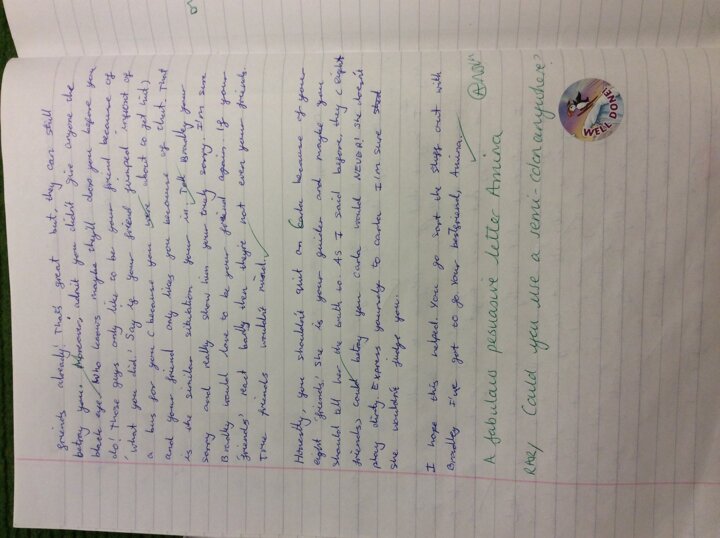 friends already! Thats great but they can still
betray you. Moreover, didn't you didn't give anyone the
black eye. Who knows maybe they'll dose you before you
do! Those guys only like to be your friend because of
'what you did.' Say if your friend jumped infront of
a bus for you (because you were about to get hit)
and your friend only likes you because of that. That
is the similar situation your in. Tell Bradley your
sorry and really show him your truly sorry! I'm sure
Bradley would love to be your friend again. If your
friends' react badly then they're not even your friends.
True friends wouldn't mind.
Honestly, you shouldn't quit on Carla because of your
eight 'friends'. She is your guider and maybe you
should tell her the truth so As I said before they (eight
friends) could betray you Carla would NEVER! She doesn't
play dirty. Express yourself to Carla I'm sure
she wouldn't judge you.
I hope this helped. You go sort the stuff out with
Bradley I've got to go Your bestfriend, Amina.
A fabulous pesuasive letter Amina
Could you use a semi-colon anywhere?
WELL DONE!